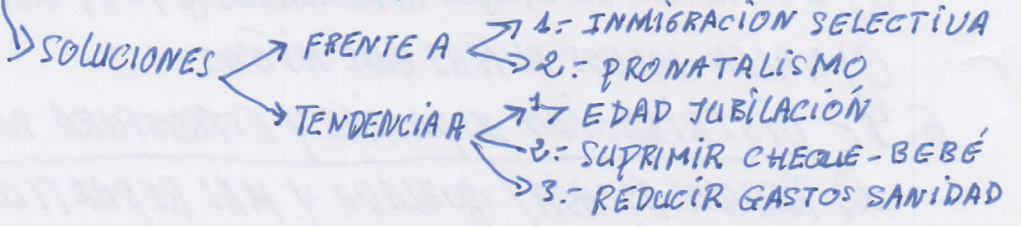 SOLUCIONES
FRENTE A
1.- INMIGRACIÓN SELECTIVA
2.- PRONATALISMO
TENDENCIA A
1.- EDAD JUBILACIÓN
2.- SUPRIMIR CHEQUE-BEBÉ
3.- REDUCIR GASTOS SANIDAD